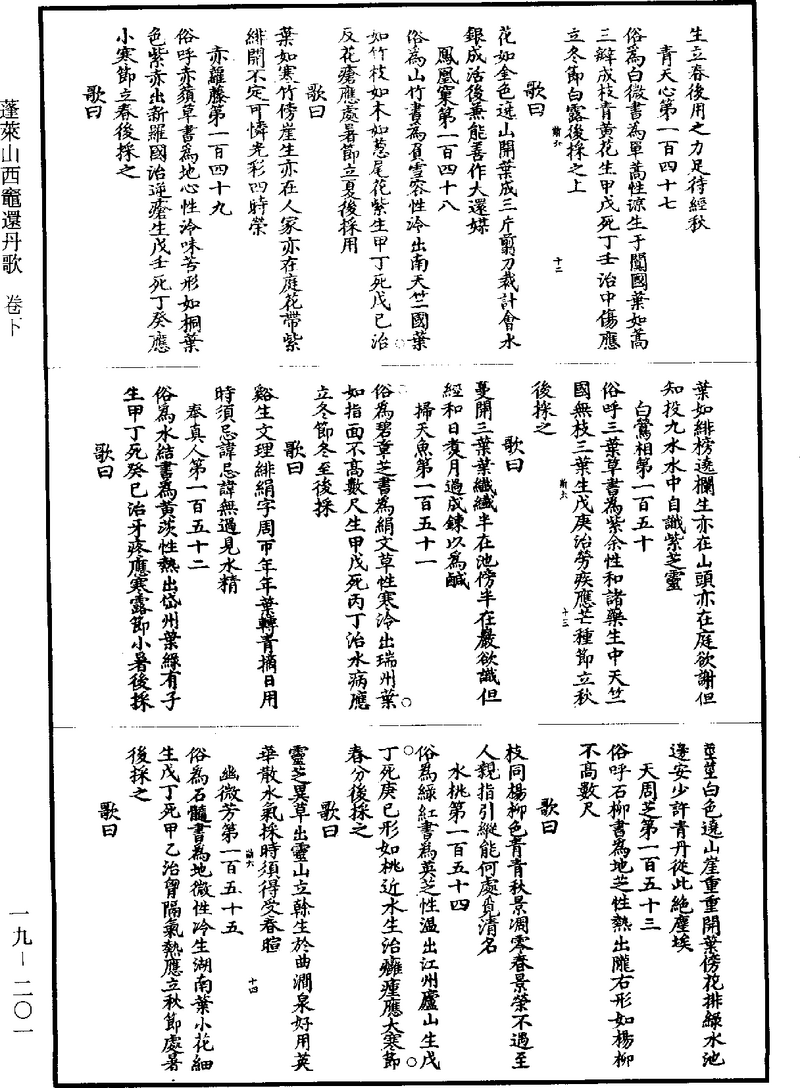 生立春後用之力足待經秋
青天心第一百四十七
俗為白微書為單蒿性諒生于闐國葉如蒿
三辯成枝青黃花生甲戊死丁壬治中傷應
立冬節白露後採之上
歌曰
十二
花如金色遶山開葉成三斤翦刀裁計會水
銀成活後兼能善作大還媒
鳳凰窠第一百四十八
俗為山竹書為負雪容性冷出南天竺國葉
如竹枝如木如蔥尾花紫生甲丁死戊巳治
反花瘡應處暑節立夏後採用
歌曰
葉如寒竹傍崖生亦在人家亦在庭花帶紫
緋開不定可憐光彩四時榮
亦羅藤第一百四十九
俗呼赤蘋草書為地心性冷味苦形如桐葉
色紫亦出新羅國治逆瘡生戊壬死丁癸應
小寒節立春後採之
歌曰
葉如緋榜遶欄生亦在山頭亦在庭欲謝但
知投九水水中自讖紫芝靈
白鶯相第一百五十
俗呼三葉草書為紫余性和諸藥生中天竺
國無枝三葉生戊庚治勞疾應芒種節立秋
後採之
十三
歌曰
蔓開三葉葉纖纖半在池傍半在巖欲識但
經和日煑月過成鍊以為鹹
掃天魚第一百五十一
俗為碧章芝書為絹文草性寒冷出瑞州葉
如指面不高數尺生甲戊死丙丁治水病應
立冬節冬至後採
歌曰
谿生文理緋絹字周帀年年葉轉青摘日用
時須忌諱忌諱無過見水精
奉真人第一百五十二
俗為水結書為黃茨性熱出岱州葉綠有子
生甲丁死癸巳治牙疼應寒露節小暑後採
歌曰
莖莖白色遶山崖重重開葉傍花排綠水池
邊安少許青丹從此絶塵埃
天周芝第一百五十三
俗呼石柳書為地芝性熱出隴右形如楊柳
不高數尺
歌曰
枝同楊柳色青青秋景凋零春景榮不遇至
人親指引縱能何處覓清名
水桃第一百五十四
俗為綠紅書為英芝性温出江州廬山生戊
丁死庚巳形如桃近水生治癰瘇應大寒節
春分後採之
歌曰
靈芝異草出靈山立榦生於曲澗泉好用英
華散水氣採時須得受春暄
十四
幽微芳第一百五十五
俗為石髓書為地微性冷生湖南葉小花細
生戊丁死甲乙治胷隔氣熱應立秋節處暑
後採之
歌曰
蓬萊山西竈還丹歌 卷下
一九－二〇一